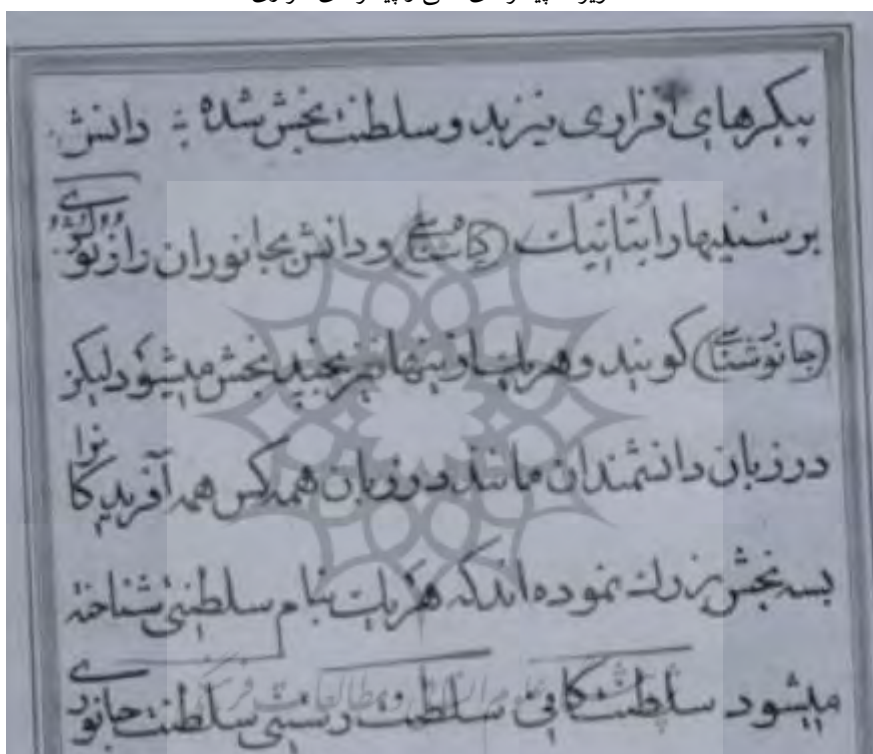 پیکرهای افزاری نیز بد و سلطنت بخش شده : دانش
برستنیها را بتانیک (گیاشناسی) و دانش بجانوران را زئولژی
(جانورشناسی) گویند و هر یک از ینها نیز بچند بخش میشود لیکن
در زبان دانشمندان مانند در زبان همه کس همه آفریدگانرا
بسه بخش بزرك نموده اند که هر یک بنام سلطنتی شناخته
میشود سلطنت کانی سلطنت رستنی سلطنت جانوری